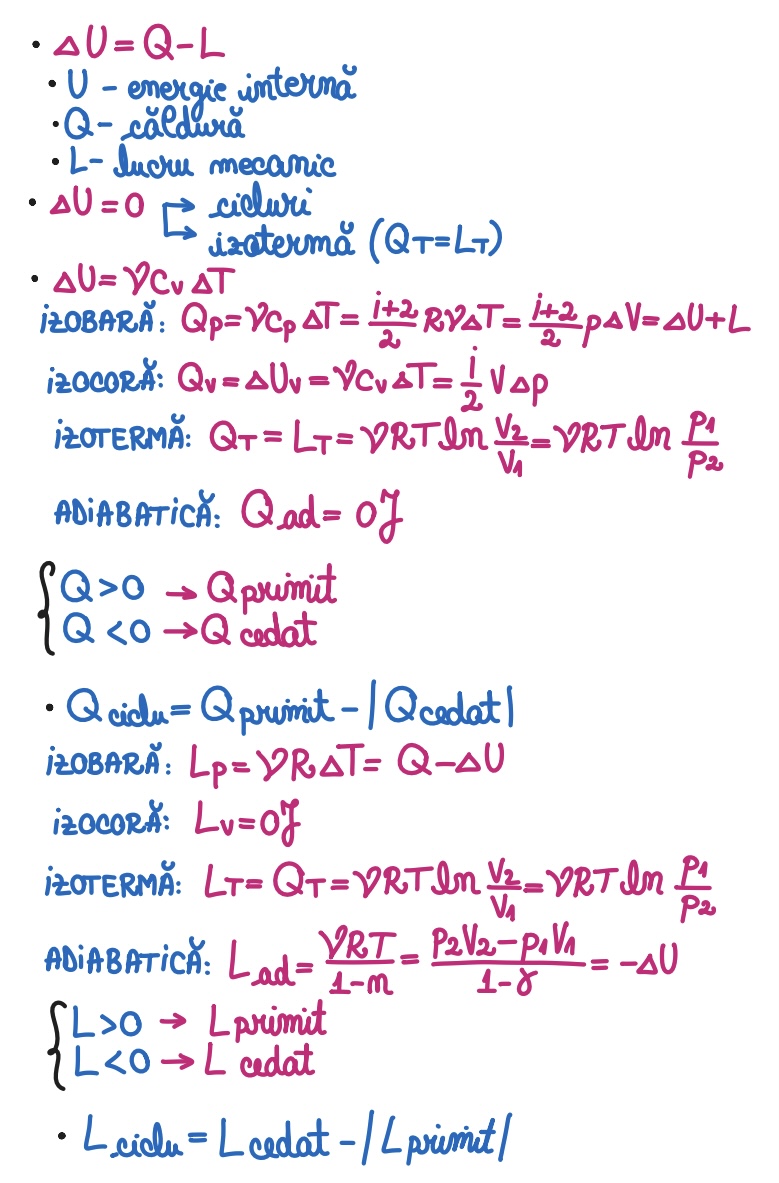 • ΔU = Q - L
• U - energie internă
• Q - căldură
• L - lucru mecanic
• ΔU = 0 → cicluri
→ izotermă (Q_T = L_T)
• ΔU = νC_v ΔT
IZOBARĂ: Q_p = νC_p ΔT = (i+2)/2 RνΔT = (i+2)/2 pΔV = ΔU + L
IZOCORĂ: Q_v = ΔU_v = νC_v ΔT = i/2 VΔp
IZOTERMĂ: Q_T = L_T = νRT ln V₂/V₁ = νRT ln p₁/p₂
ADIABATICĂ: Q_ad = 0J
{ Q > 0 → Q primit
Q < 0 → Q cedat
• Q ciclu = Q primit - |Q cedat|
IZOBARĂ: L_p = νRΔT = Q - ΔU
IZOCORĂ: L_v = 0J
IZOTERMĂ: L_T = Q_T = νRT ln V₂/V₁ = νRT ln p₁/p₂
ADIABATICĂ: L_ad = νRT/(1-n) = (p₂V₂ - p₁V₁)/(1-γ) = -ΔU
{ L > 0 → L primit
L < 0 → L cedat
• L ciclu = L cedat - |L primit|